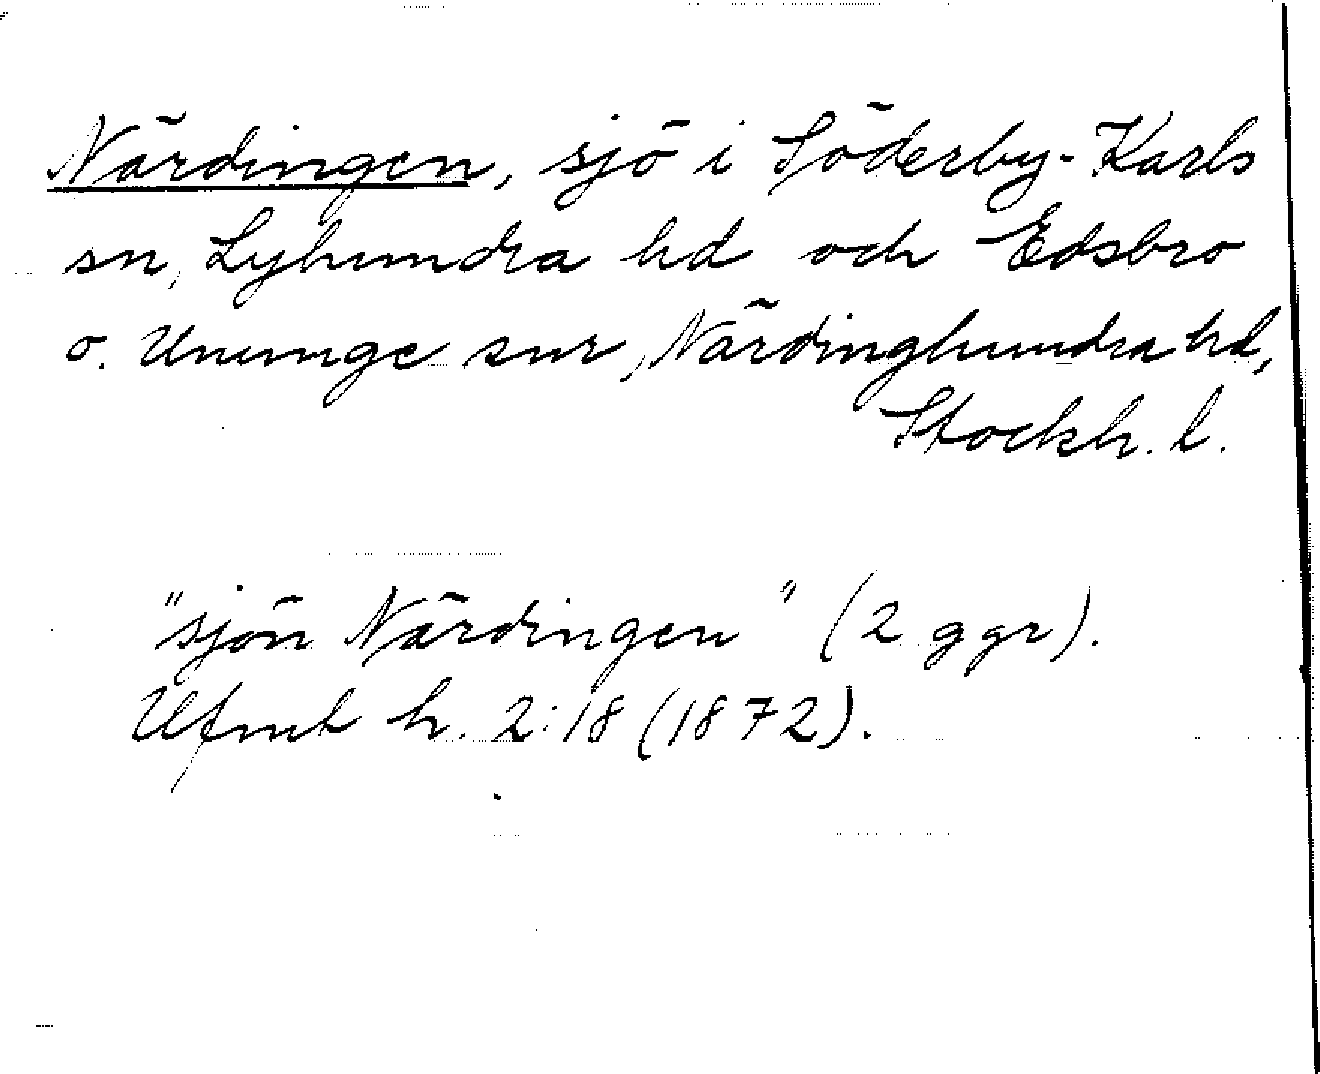 Närdingen, sjö i Söderby-Karls
sn, Lyhundra hd och Edsbro
o. Ununge snr, Närdinghundra hd,
Stockh. l.
"sjön Närdingen" (2 ggr).
Ufmt h. 2:18 (1872).